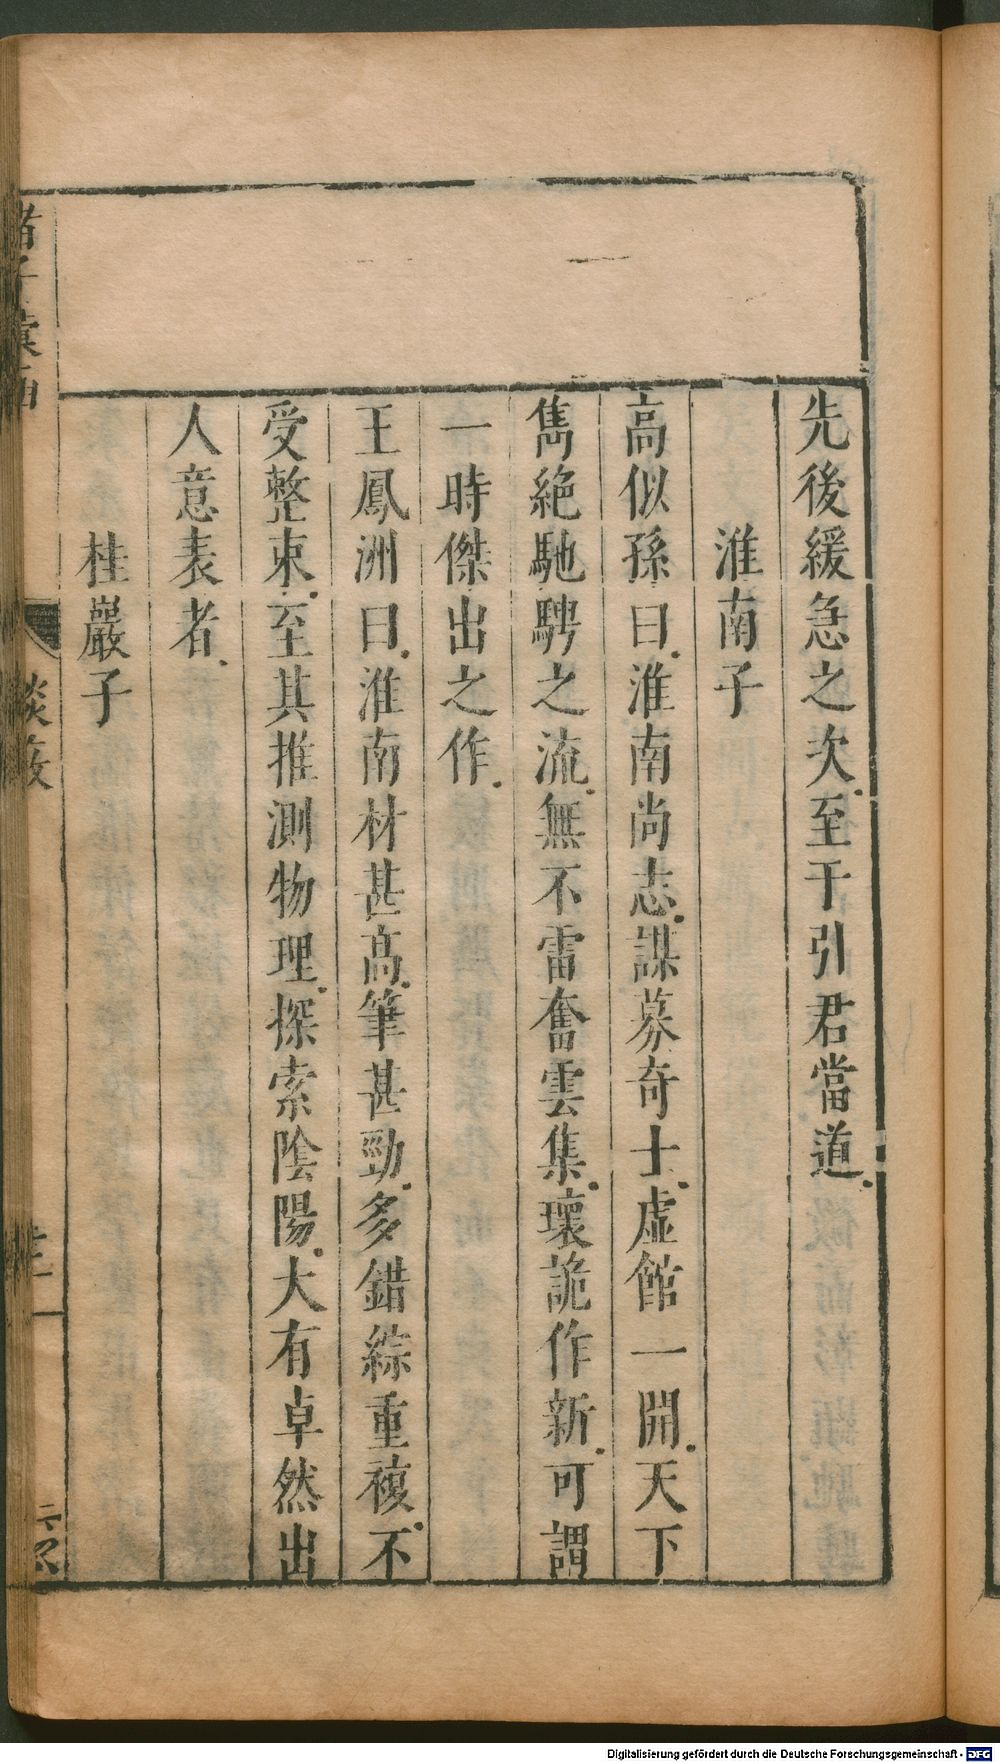 先後緩急之次至于引君當道
淮南子
高似孫曰淮南尚志謀募奇士虛館一開天下
雋絶馳騁之流無不雷奮雲集瓌詭作新可謂
一時傑出之作
王鳳洲曰淮南材甚高筆甚勁多錯綜重複不
受整束至其推測物理探索陰陽大有卓然出
人意表者
桂巖子
諸子彙函
談藪
Digitalisierung gefördert durch die Deutsche Forschungsgemeinschaft - DFG